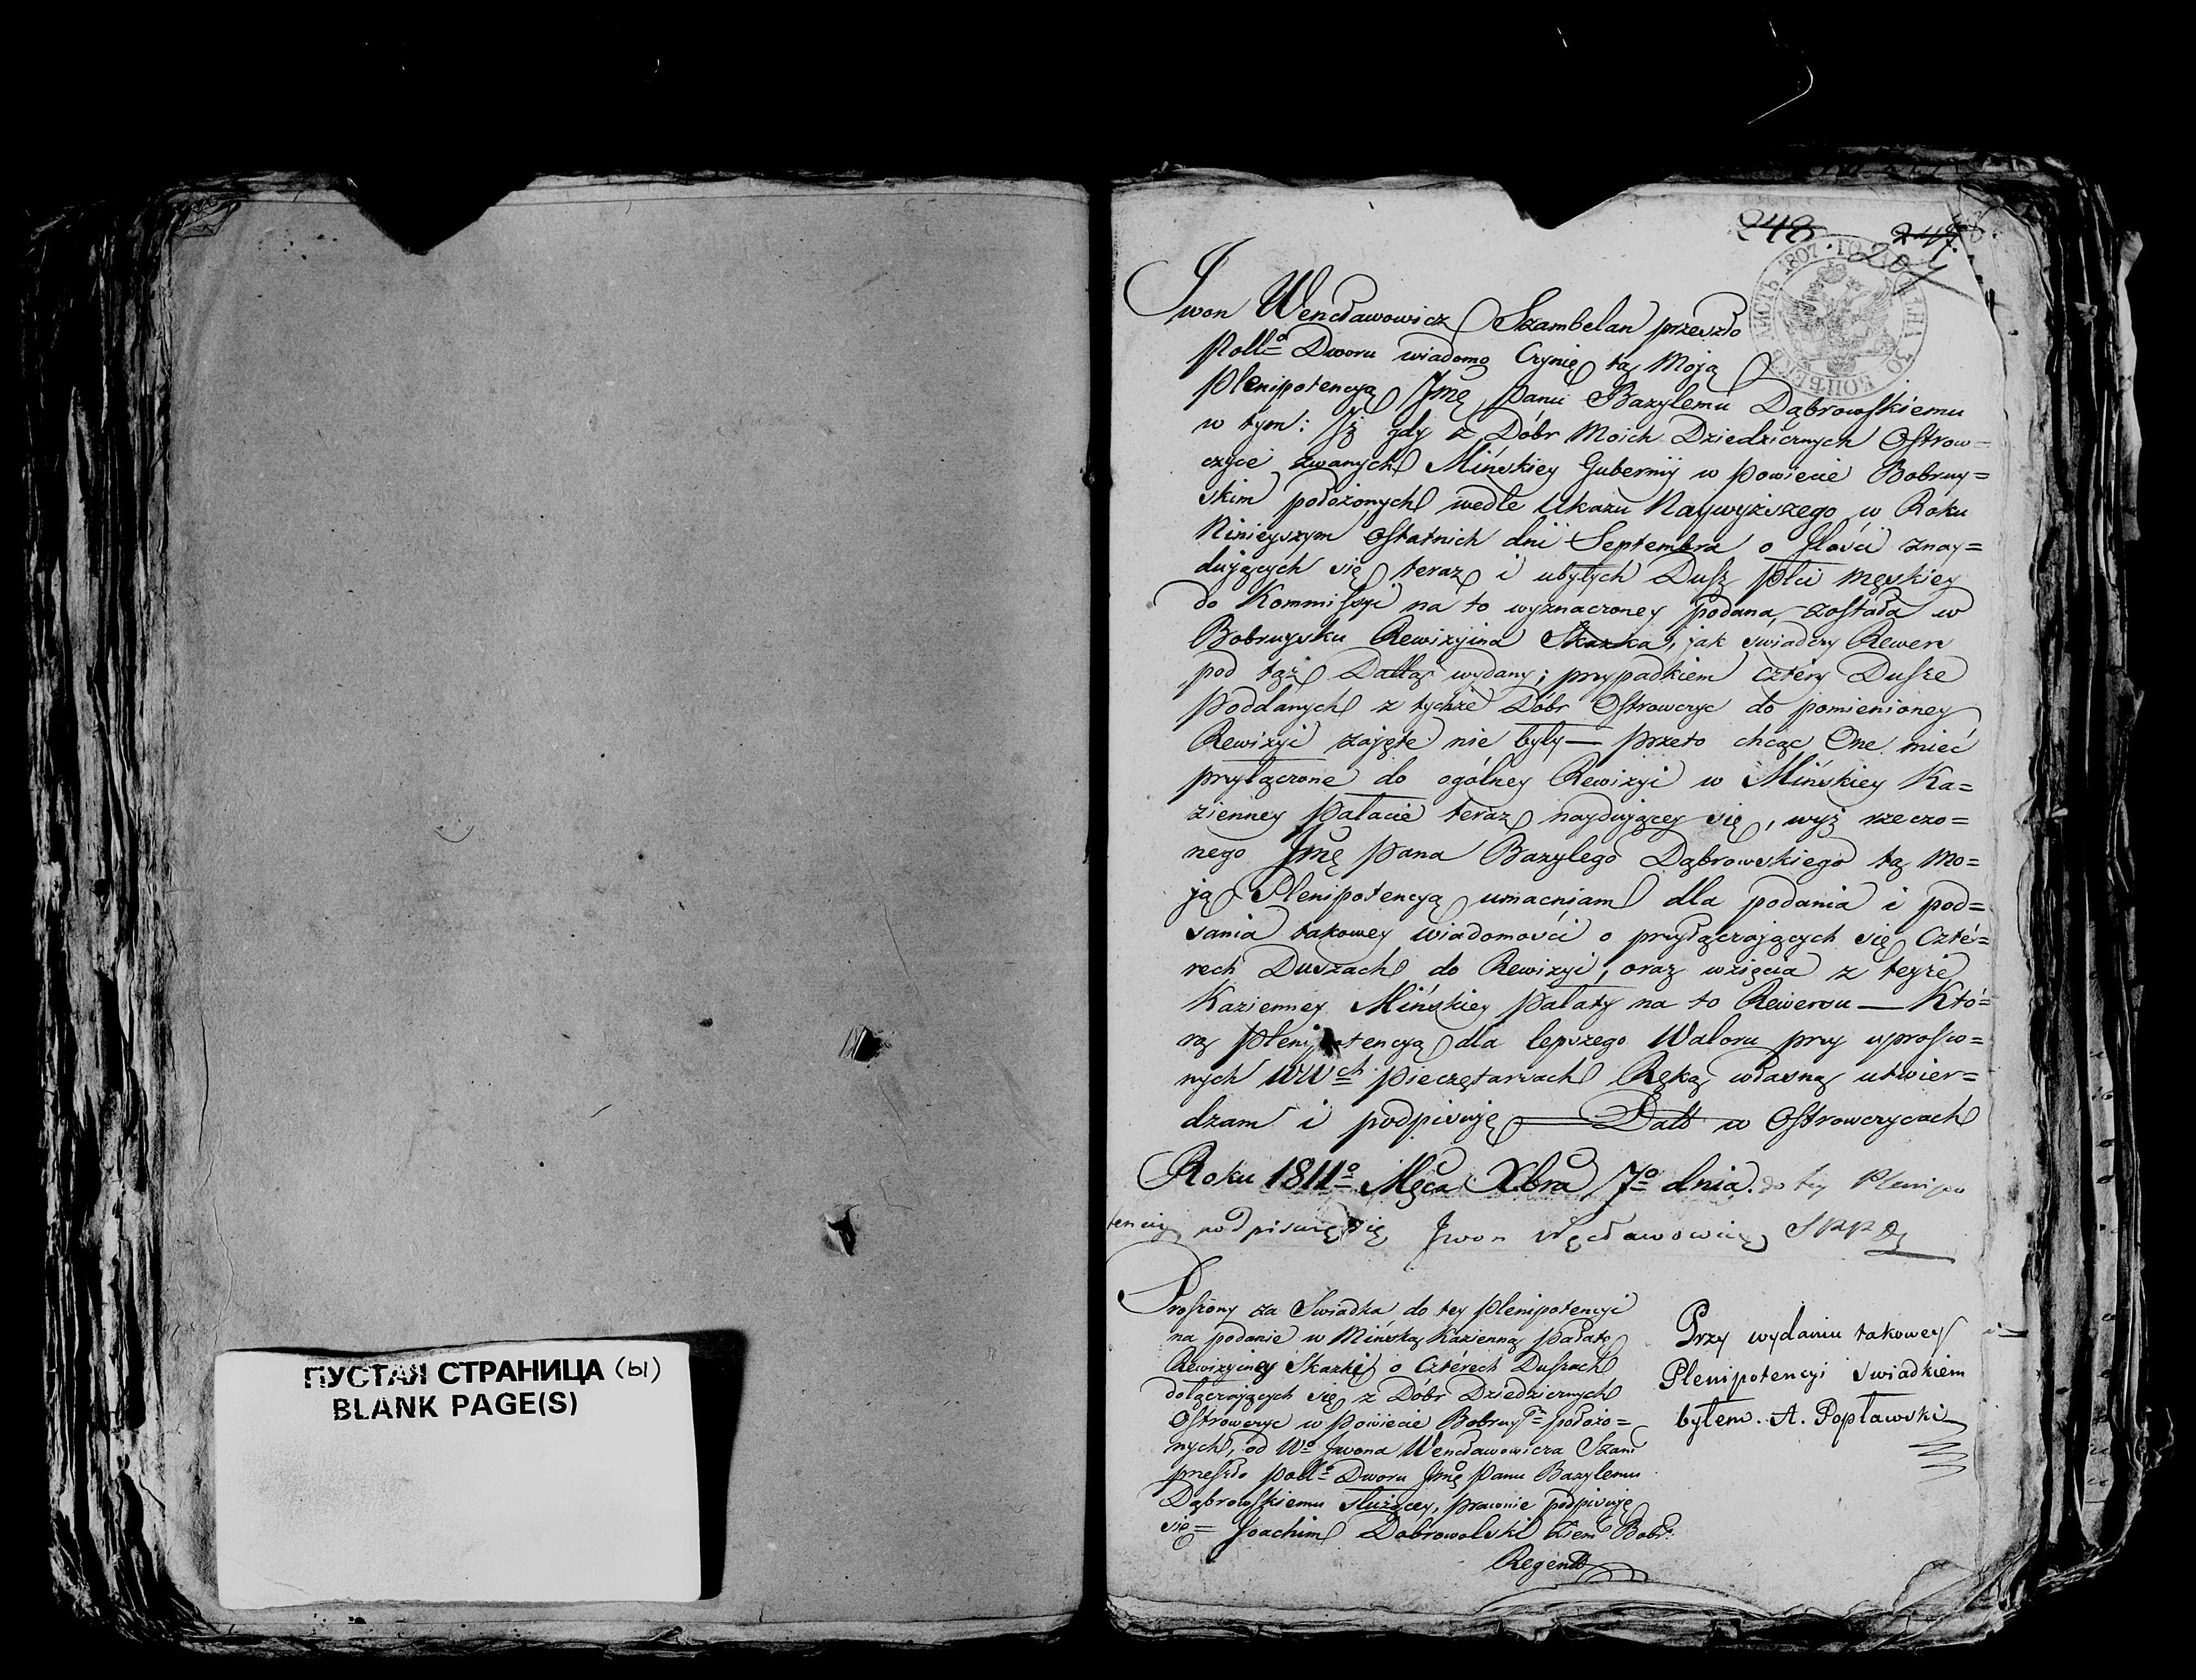 ПУСТАЯ СТРАНИЦА (Ы)
BLANK PAGE(S)
248 247
Jwon Wencławowicz Szambelan przeszło
Polło Dworu wiadomo Czynię tą Moją
Plenipotencyą Jmę Panu Bazylemu Dąbrowskiemu
w tym: Jż gdy z Dóbr Moich Dziedzicznych Ostrow=
czyce zwanych Mińskiey Gubernij w Powiecie Bobruy=
skim położonych wedle Ukazu Naywyższego w Roku
Ninieyszym Ostatnich dni Septembra o Jlości znay=
dujących się teraz i ubyłych Dusz płci męskiey
do Kommissyi na to wyznaczoney podana została w
Bobruysku Rewizyina Skazka, jak swiadczy Rewers
pod tąż Dattą wydany; przypadkiem cztéry Dusze
Poddanych z tychże Dóbr Ostrowczyc do pomienioney
Rewizyi zajęte nie były — przeto chcąc One mieć
przyłączone do ogólney Rewizyi w Mińskiey Ka=
zienney Pałacie teraz naydującey się, wyż rzeczo=
nego Jmę Pana Bazylego Dąbrowskiego tą Mo=
ją Plenipotencyą umacniam dla podania i pod=
sania takowey wiadomości o przyłączających się Czté=
rech Duszach do Rewizyi, oraz wzięcia z teyże
Kazienney Mińskiey Pałaty na to Rewersu — Któ=
rą Plenipotencyą dla lepszego Waloru przy uproszo=
nych WWch Pieczętarzach Ręką własną utwier=
dzam i podpisuję — Datt w Ostrowczycach
Roku 1811o Męca Xbra 7o dnia. do tey Plenipo
tencyi podpisuię się Jwon Węcławowicz SPPD
Proszony za Swiadka do tey Plenipotencyi
na podanie w Mińską Kazienną Pałatę
Rewizyiney Skazki o Cztérech Duszach
dołączających się z Dóbr Dziedzicznych
Ostrowczyc w Powiecie Bobruyo położo=
nych, od Wo Jwona Wencławowicza Szam
przeszło Polło Dworu Jmę Panu Bazylemu
Dąbrowskiemu służącey, prawnie podpisuję
się = Joachim Dobrowolski Ziem Bobr:
Regent
Przy wydaniu takowey
Plenipotencyi swiadkiem
byłem. A. Popławski